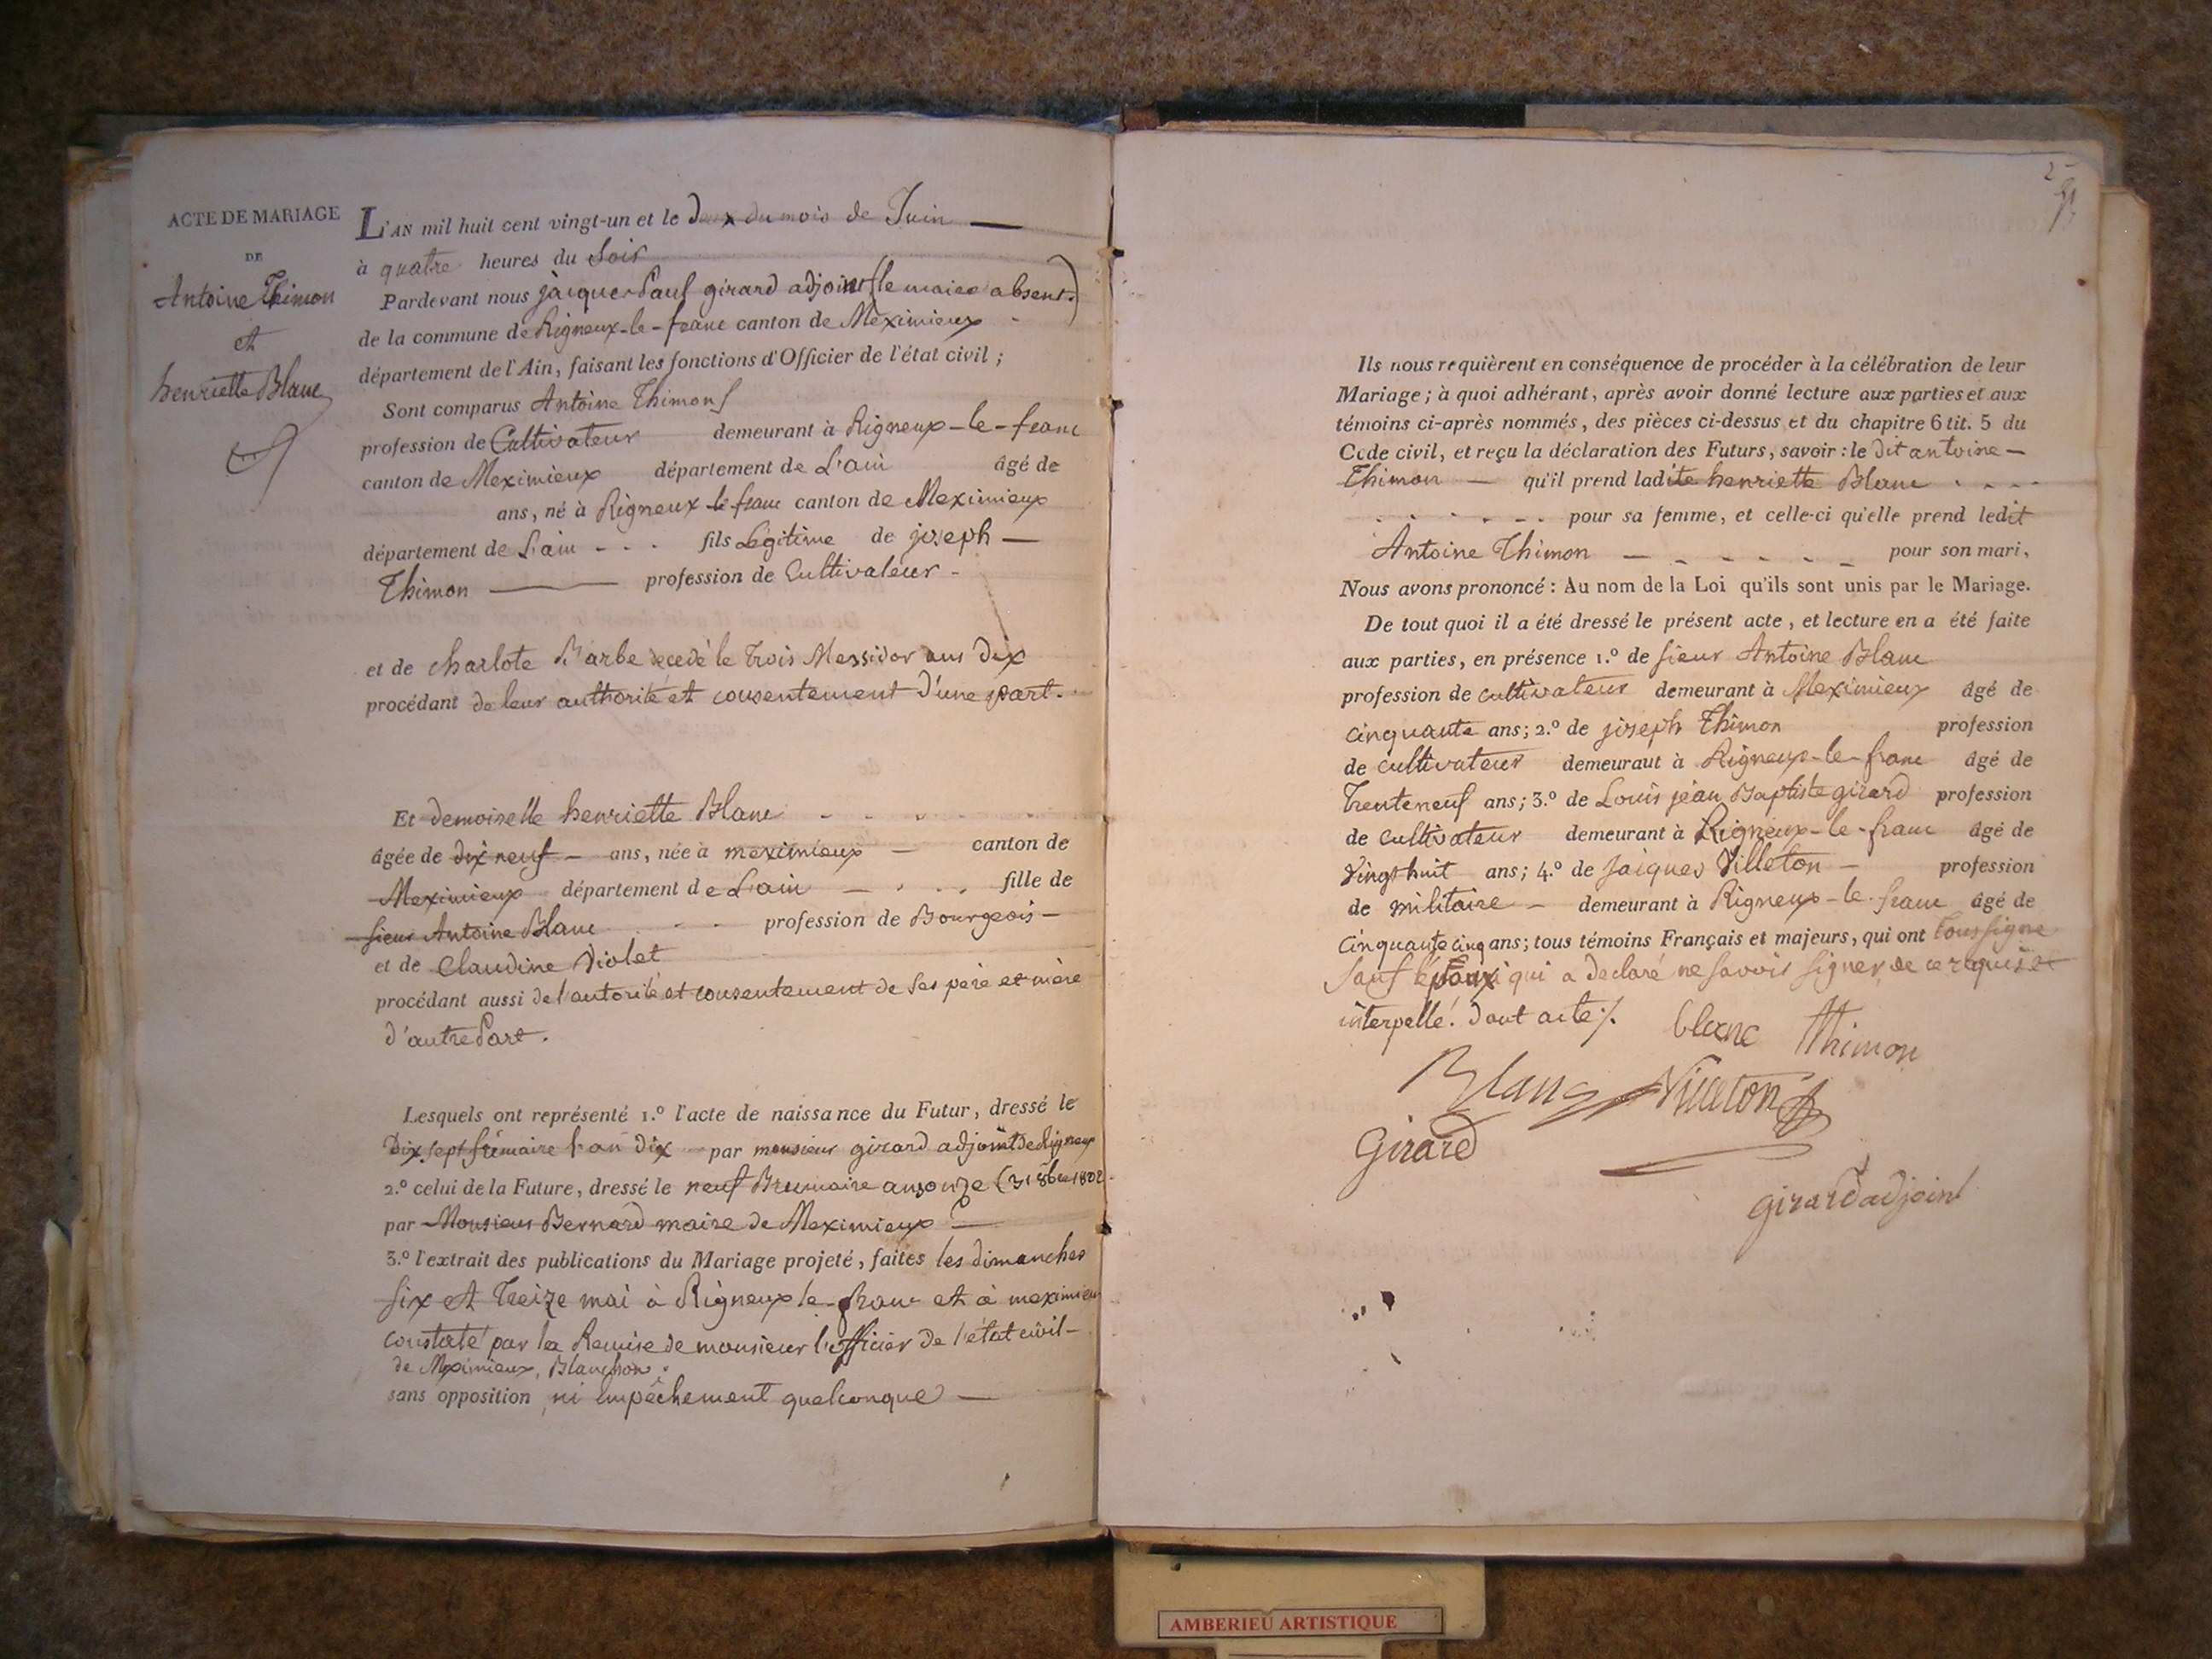 ACTE DE MARIAGE
DE
Antoine Thimon
et
henriette Blanc
L'AN mil huit cent vingt-un et le deux du mois de Juin
à quatre heures du Soir
Pardevant nous jàcques Paul girard adjoint (le maire absent.)
de la commune de Rigneux-le-franc canton de Meximieux
département de l'Ain, faisant les fonctions d'Officier de l'état civil ;
Sont comparus Antoine Thimon
profession de Cultivateur demeurant à Rigneux-le-franc
canton de Meximieux département de L'ain âgé de
ans, né à Rigneux le franc canton de Meximieux
département de L'ain - - - fils Légitime de joseph —
Thimon — profession de Cultivateur -
et de charlote Barbe decedé le trois Messidor ans dix
procédant de leur authorité et consentement d'une part.
Et demoiselle henriette Blanc
âgée de dix neuf - ans, née à meximieux — canton de
Meximieux département de L'ain fille de
sieur Antoine Blanc profession de Bourgeois -
et de Claudine Violet
procédant aussi de l'autorité et consentement de ses père et mère
d'autre Part.
Lesquels ont représenté 1.º l'acte de naissance du Futur, dressé le
Dix sept frimaire l'an dix par monsieur girard adjoint de Rigneux
2.º celui de la Future, dressé le neuf Brumaire an onze (31 8bre 1802
par Monsieur Bernard maire de Meximieux
3.º l'extrait des publications du Mariage projeté, faites les dimanches
six et Treize mai à Rigneux le franc et à meximieux
constaté par la Remise de monsieur l'officier de l'état civil -
de Meximieux, Blanchon.
sans opposition ni empêchement quelconque —
Ils nous requièrent en conséquence de procéder à la célébration de leur
Mariage ; à quoi adhérant, après avoir donné lecture aux parties et aux
témoins ci-après nommés, des pièces ci-dessus et du chapitre 6 tit. 5 du
Code civil, et reçu la déclaration des Futurs, savoir : le dit antoine —
Thimon — qu'il prend ladite henriette Blanc
pour sa femme, et celle-ci qu'elle prend ledit
Antoine Thimon pour son mari,
Nous avons prononcé : Au nom de la Loi qu'ils sont unis par le Mariage.
De tout quoi il a été dressé le présent acte, et lecture en a été faite
aux parties, en présence 1.º de sieur Antoine Blanc
profession de cultivateur demeurant à Meximieux âgé de
cinquante ans ; 2.º de joseph Thimon profession
de cultivateur demeuraut à Rigneux-le-franc âgé de
Trente neuf ans ; 3.º de Louis jean Baptiste girard profession
de cultivateur demeurant à Rigneux-le-franc âgé de
vingt huit ans ; 4.º de Jacques Villeton - profession
de militaire - demeurant à Rigneux-le-franc âgé de
Cinquante cinq ans ; tous témoins Français et majeurs, qui ont tous signé
sauf l'époux qui a declaré ne savoir signer, de ce requis et
interpellé. dont acte /.
blanc Thimon
Blanc Villeton
Girard
girard adjoint
AMBERIEU ARTISTIQUE